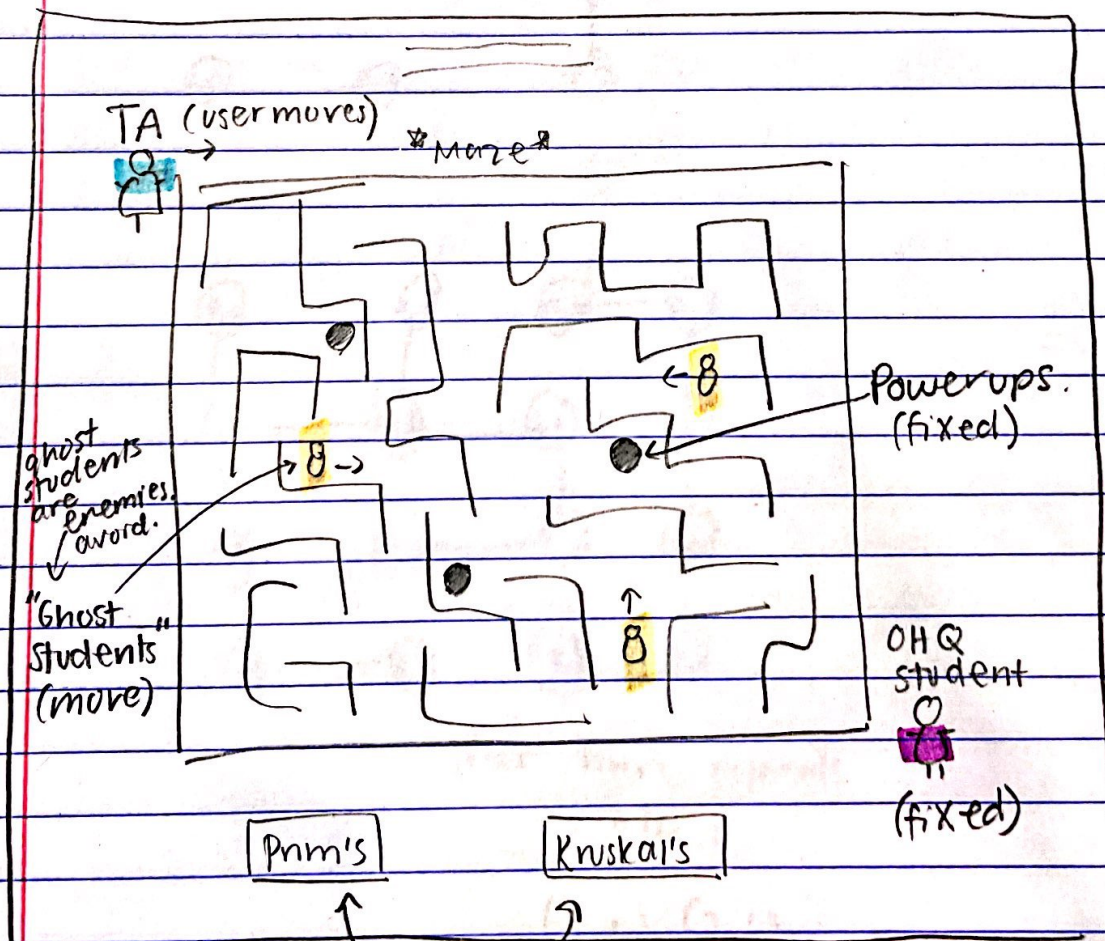 TA (user moves)
*Maze*
Powerups.
(fixed)
ghost
students
are
enemies.
avoid.
"Ghost
students"
(move)
OHQ
student
(fixed)
Prim's
Kruskal's